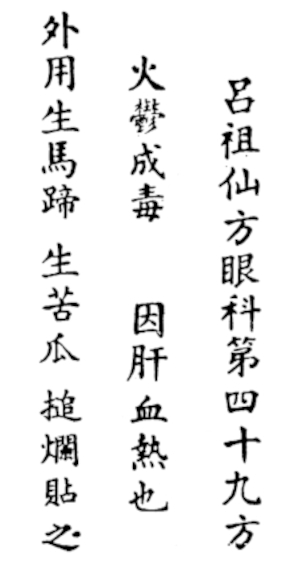 呂祖仙方眼科第四十九方
火鬱成毒 因肝血熱也
外用生馬蹄 生苦瓜 搥爛貼之